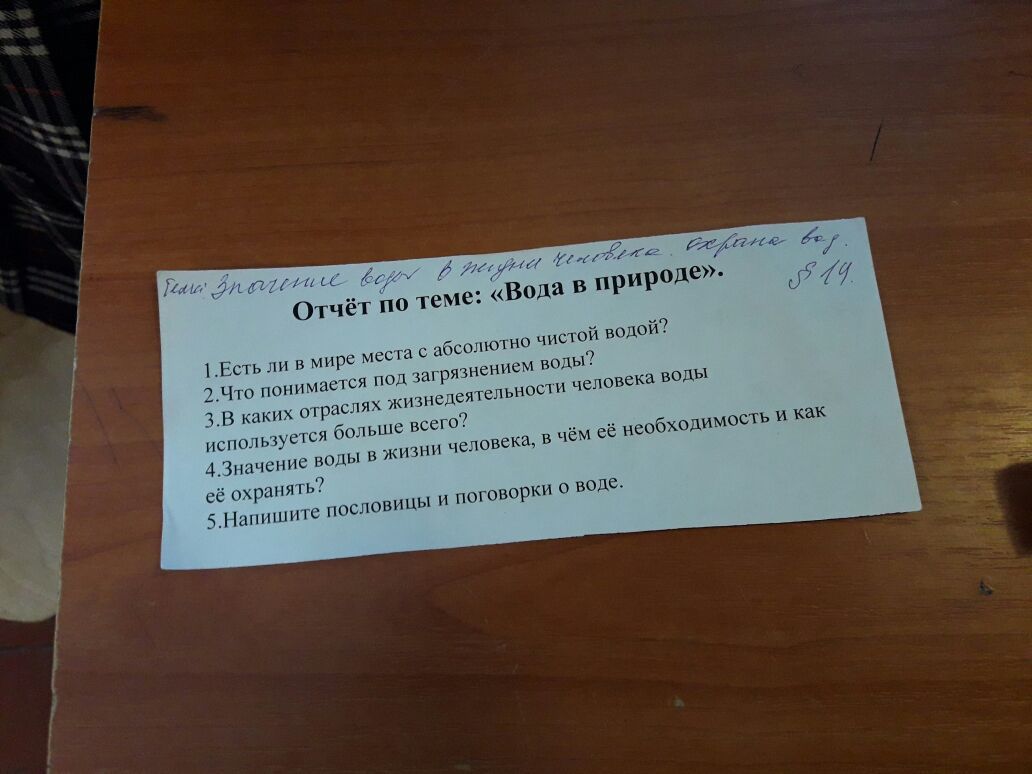 Тема: Значение воды в жизни человека. охрана вод.
§ 19.
Отчёт по теме: «Вода в природе».
1.Есть ли в мире места с абсолютно чистой водой?
2.Что понимается под загрязнением воды?
3.В каких отраслях жизнедеятельности человека воды
используется больше всего?
4.Значение воды в жизни человека, в чём её необходимость и как
её охранять?
5.Напишите пословицы и поговорки о воде.